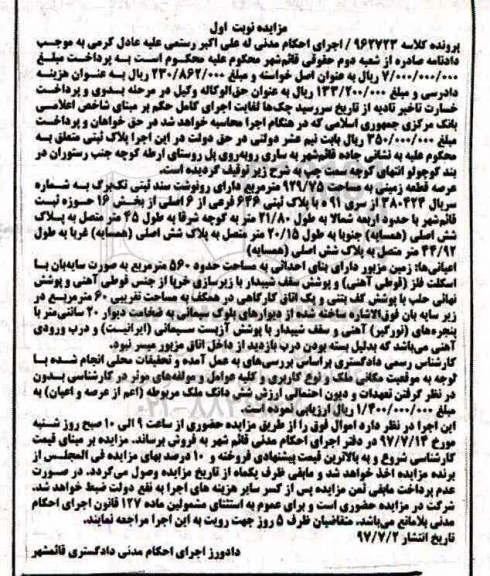 مزایده نوبت اول
پرونده کلاسه ۹۶۲۷۲۳ / اجرای احکام مدنی له علی اکبر رستمی علیه عادل کرمی به موجب
دادنامه صادره از شعبه دوم حقوقی قائم‌شهر محکوم علیه محکوم است به پرداخت مبلغ
۷/۰۰۰/۰۰۰/۰۰۰ ریال به عنوان اصل خواسته و مبلغ ۲۳۰/۸۶۲/۰۰۰ ریال به عنوان هزینه
دادرسی و مبلغ ۱۳۳/۲۰۰/۰۰۰ ریال به عنوان حق‌الوکاله وکیل در مرحله بدوی و پرداخت
خسارت تاخیر تادیه از تاریخ سررسید چک‌ها لغایت اجرای کامل حکم بر مبنای شاخص اعلامی
بانک مرکزی جمهوری اسلامی که در هنگام اجرا محاسبه خواهد شد در حق خواهان و پرداخت
مبلغ ۳۵۰/۰۰۰/۰۰۰ ریال بابت نیم عشر دولتی در حق دولت در این اجرا پلاک ثبتی متعلق به
محکوم علیه به نشانی جاده قائم‌شهر به ساری روبه‌روی پل روستای ارطه کوچه جنب رستوران در
بند کوچولو انتهای کوچه سمت چپ به شرح زیر توقیف گردیده است.
عرصه قطعه زمینی به مساحت ۹۲۹/۷۵ مترمربع دارای رونوشت سند ثبتی تک‌برگ به شماره
سریال ۳۸۰۴۲۳ از سری ۹۱ د با پلاک ثبتی ۶۴۶ فرعی از ۶ اصلی از بخش ۱۶ حوزه ثبت
قائم‌شهر با حدود اربعه شمالا به طول ۲۱/۸۰ متر به کوچه شرقا به طول ۴۵ متر متصل به پلاک
شش اصلی (همسایه) جنوبا به طول ۲۰/۱۵ متر متصل به پلاک شش اصلی (همسایه) غربا به طول
۴۴/۹۲ متر متصل به پلاک شش اصلی (همسایه)
اعیانی‌ها: زمین مزبور دارای بنای احداثی به مساحت حدود ۵۶۰ مترمربع به صورت سایه‌بان با
اسکلت فلز (قوطی آهنی) و پوشش سقف شیبدار با زیرسازی خرپا از جنس قوطی آهنی و پوشش
نهائی حلب با پوشش کف بتنی و یک اتاق کارگاهی در همکف به مساحت تقریبی ۶۰ مترمربع در
زیر سایه بان فوق‌الاشاره ساخته شده از دیوارهای بلوک سیمانی به ضخامت دیوار ۲۰ سانتی‌متر با
پنجره‌های (نورگیر) آهنی و سقف شیبدار با پوشش آزبست سیمانی (ایرانیت) و درب ورودی
آهنی می‌باشد که بدلیل بسته بودن درب بازدید از داخل اتاق مزبور میسر نبود.
کارشناس رسمی دادگستری براساس بررسی‌های به عمل آمده و تحقیقات محلی انجام شده با
توجه به موقعیت مکانی ملک و نوع کاربری و کلیه عوامل و مولفه‌های موثر در کارشناسی بدون
در نظر گرفتن تعهدات و دیون احتمالی ارزش شش دانگ ملک مربوطه (اعم از عرصه و اعیان) به
مبلغ ۱/۴۰۰/۰۰۰/۰۰۰ ریال ارزیابی نموده است.
این اجرا در نظر دارد اموال فوق را از طریق مزایده حضوری از ساعت ۹ الی ۱۰ صبح روز شنبه
مورخ ۹۷/۷/۱۴ در دفتر اجرای احکام مدنی قائم شهر به فروش برساند. مزایده بر مبنای قیمت
کارشناسی شروع و به بالاترین قیمت پیشنهادی فروخته و ۱۰ درصد بهای مزایده فی المجلس از
برنده مزایده اخذ خواهد شد و مابقی ظرف یکماه از تاریخ مزایده وصول می‌گردد. در صورت
عدم پرداخت مابقی ثمن مزایده پس از کسر سایر هزینه های اجرا به نفع دولت ضبط خواهد شد.
شرکت در مزایده حضوری است و برای عموم به استثنای مشمولین ماده ۱۲۷ قانون اجرای احکام
مدنی بلامانع می‌باشد. متقاضیان ظرف ۵ روز جهت رویت به این اجرا مراجعه نمایند.
تاریخ انتشار ۹۷/۷/۲
دادورز اجرای احکام مدنی دادگستری قائمشهر